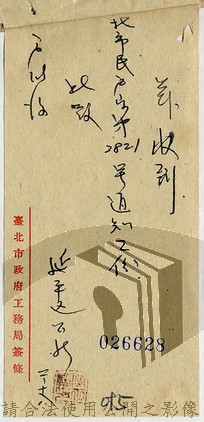 茲收到
北市民戶字第2821號通知乙份
此致
戶政科
延平區公所
臺北市政府工務局簽條
026628
請合法使用公開之影像